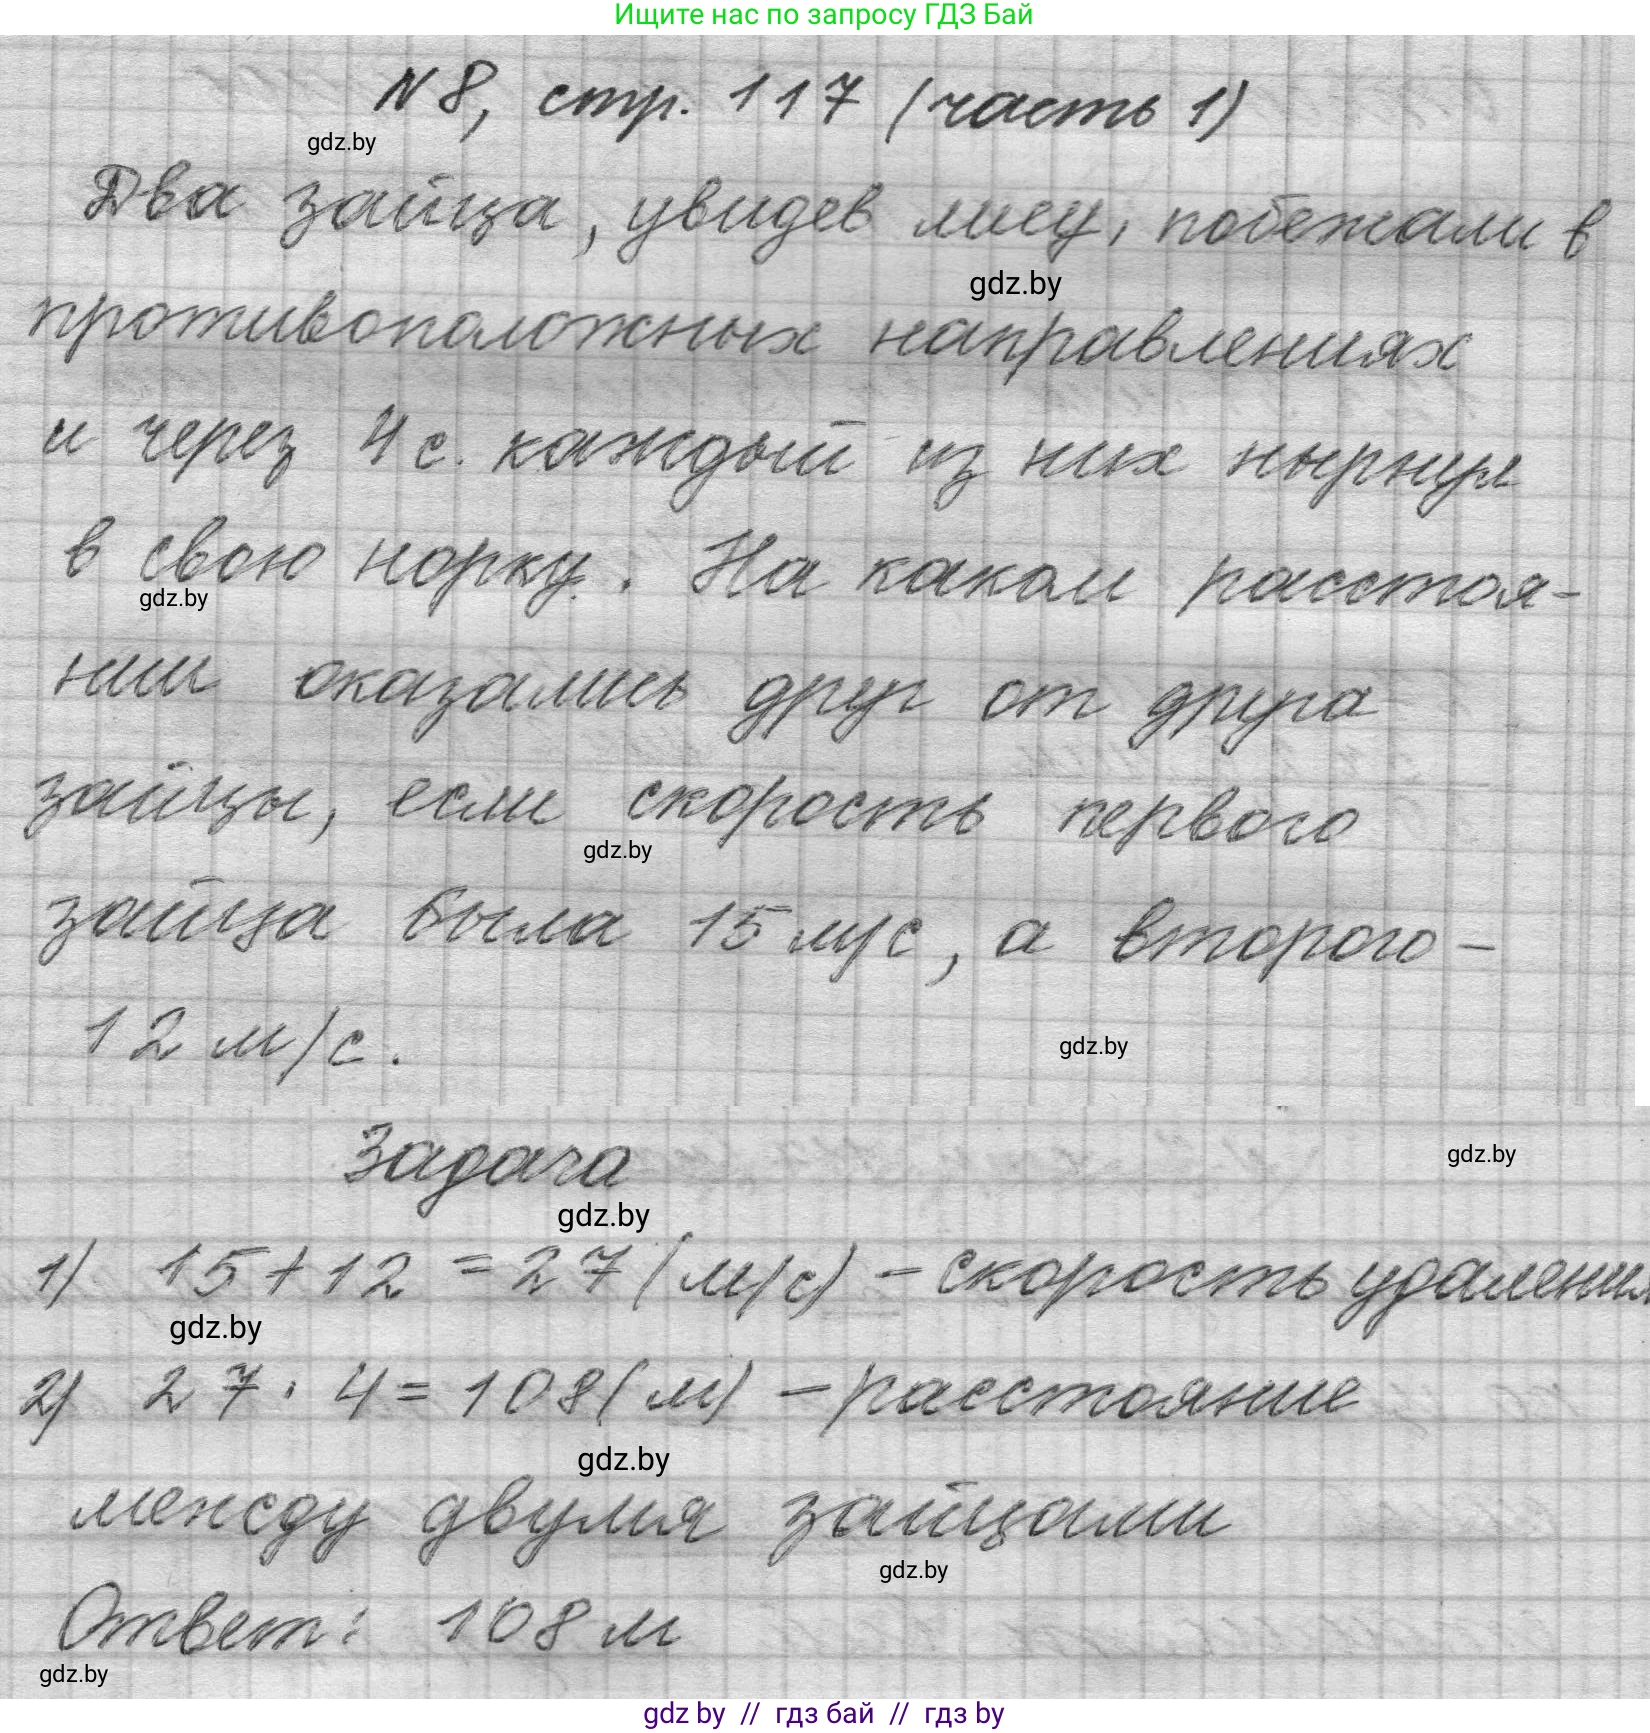 Ищите нас по запросу ГДЗ Бай
N 8, стр. 117 (часть 1)
gdz.by
Два зайца, увидев лису, побежали в
gdz.by
противоположных направлениях
и через 4 с. каждый из них нырнул
в свою норку. На каком расстоя-
gdz.by
нии оказались друг от друга
зайцы, если скорость первого
gdz.by
зайца была 15 м/с, а второго -
12 м/с.
gdz.by
Задача
gdz.by
gdz.by
1) 15 + 12 = 27 (м/с) - скорость удаления
gdz.by
2) 27 · 4 = 108 (м) - расстояние
gdz.by
между двумя зайцами
gdz.by
Ответ: 108 м
gdz.by
gdz by // гдз бай // гдз by